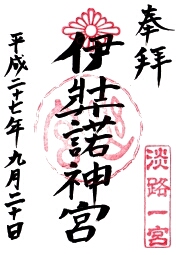 奉拝
伊弉諾神宮
平成二十七年九月二十日
淡路一宮